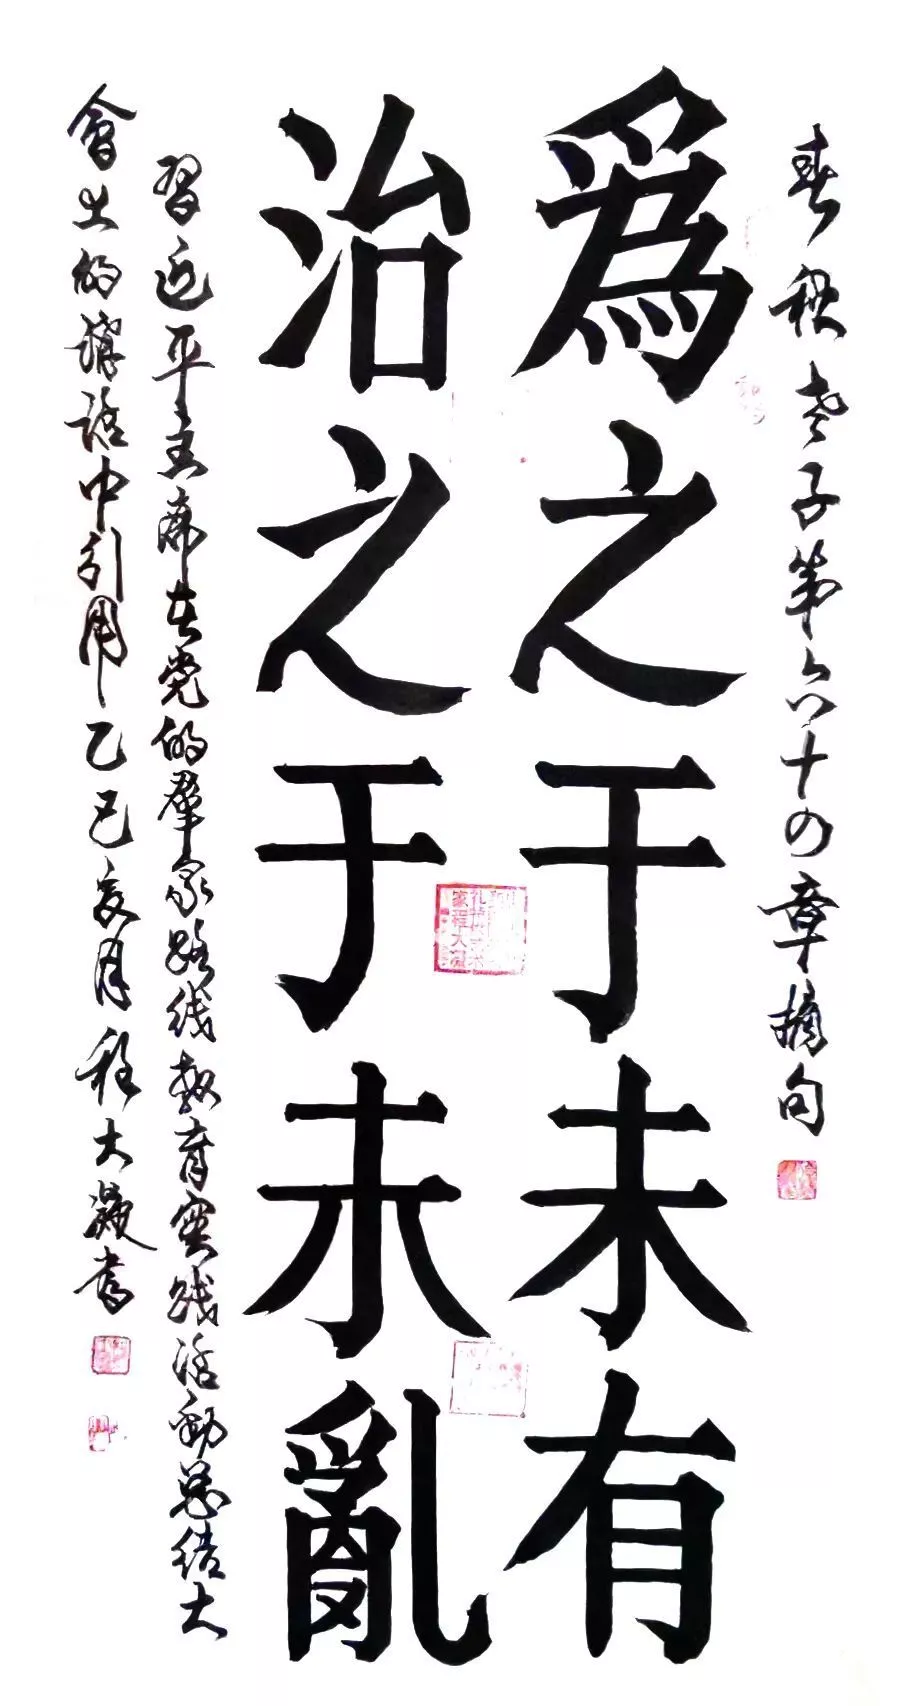 春秋老子第六十四章摘句
爲之于未有
治之于未亂
習近平主席在党的群众路线教育实践活動总结大
會上的講话中引用乙巳夏月程大凝書